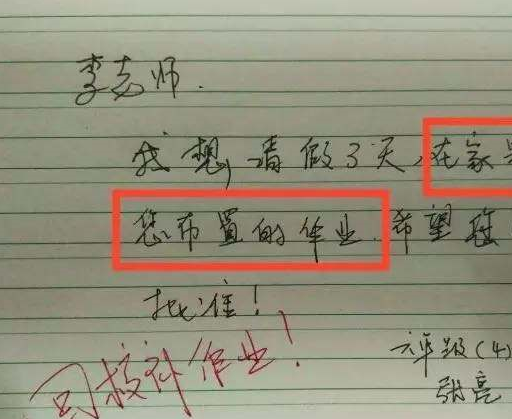 李老师.
我想请假3天,在家
您布置的作业.希望您
批准!
回校补作业!
六年级(4)
张亮